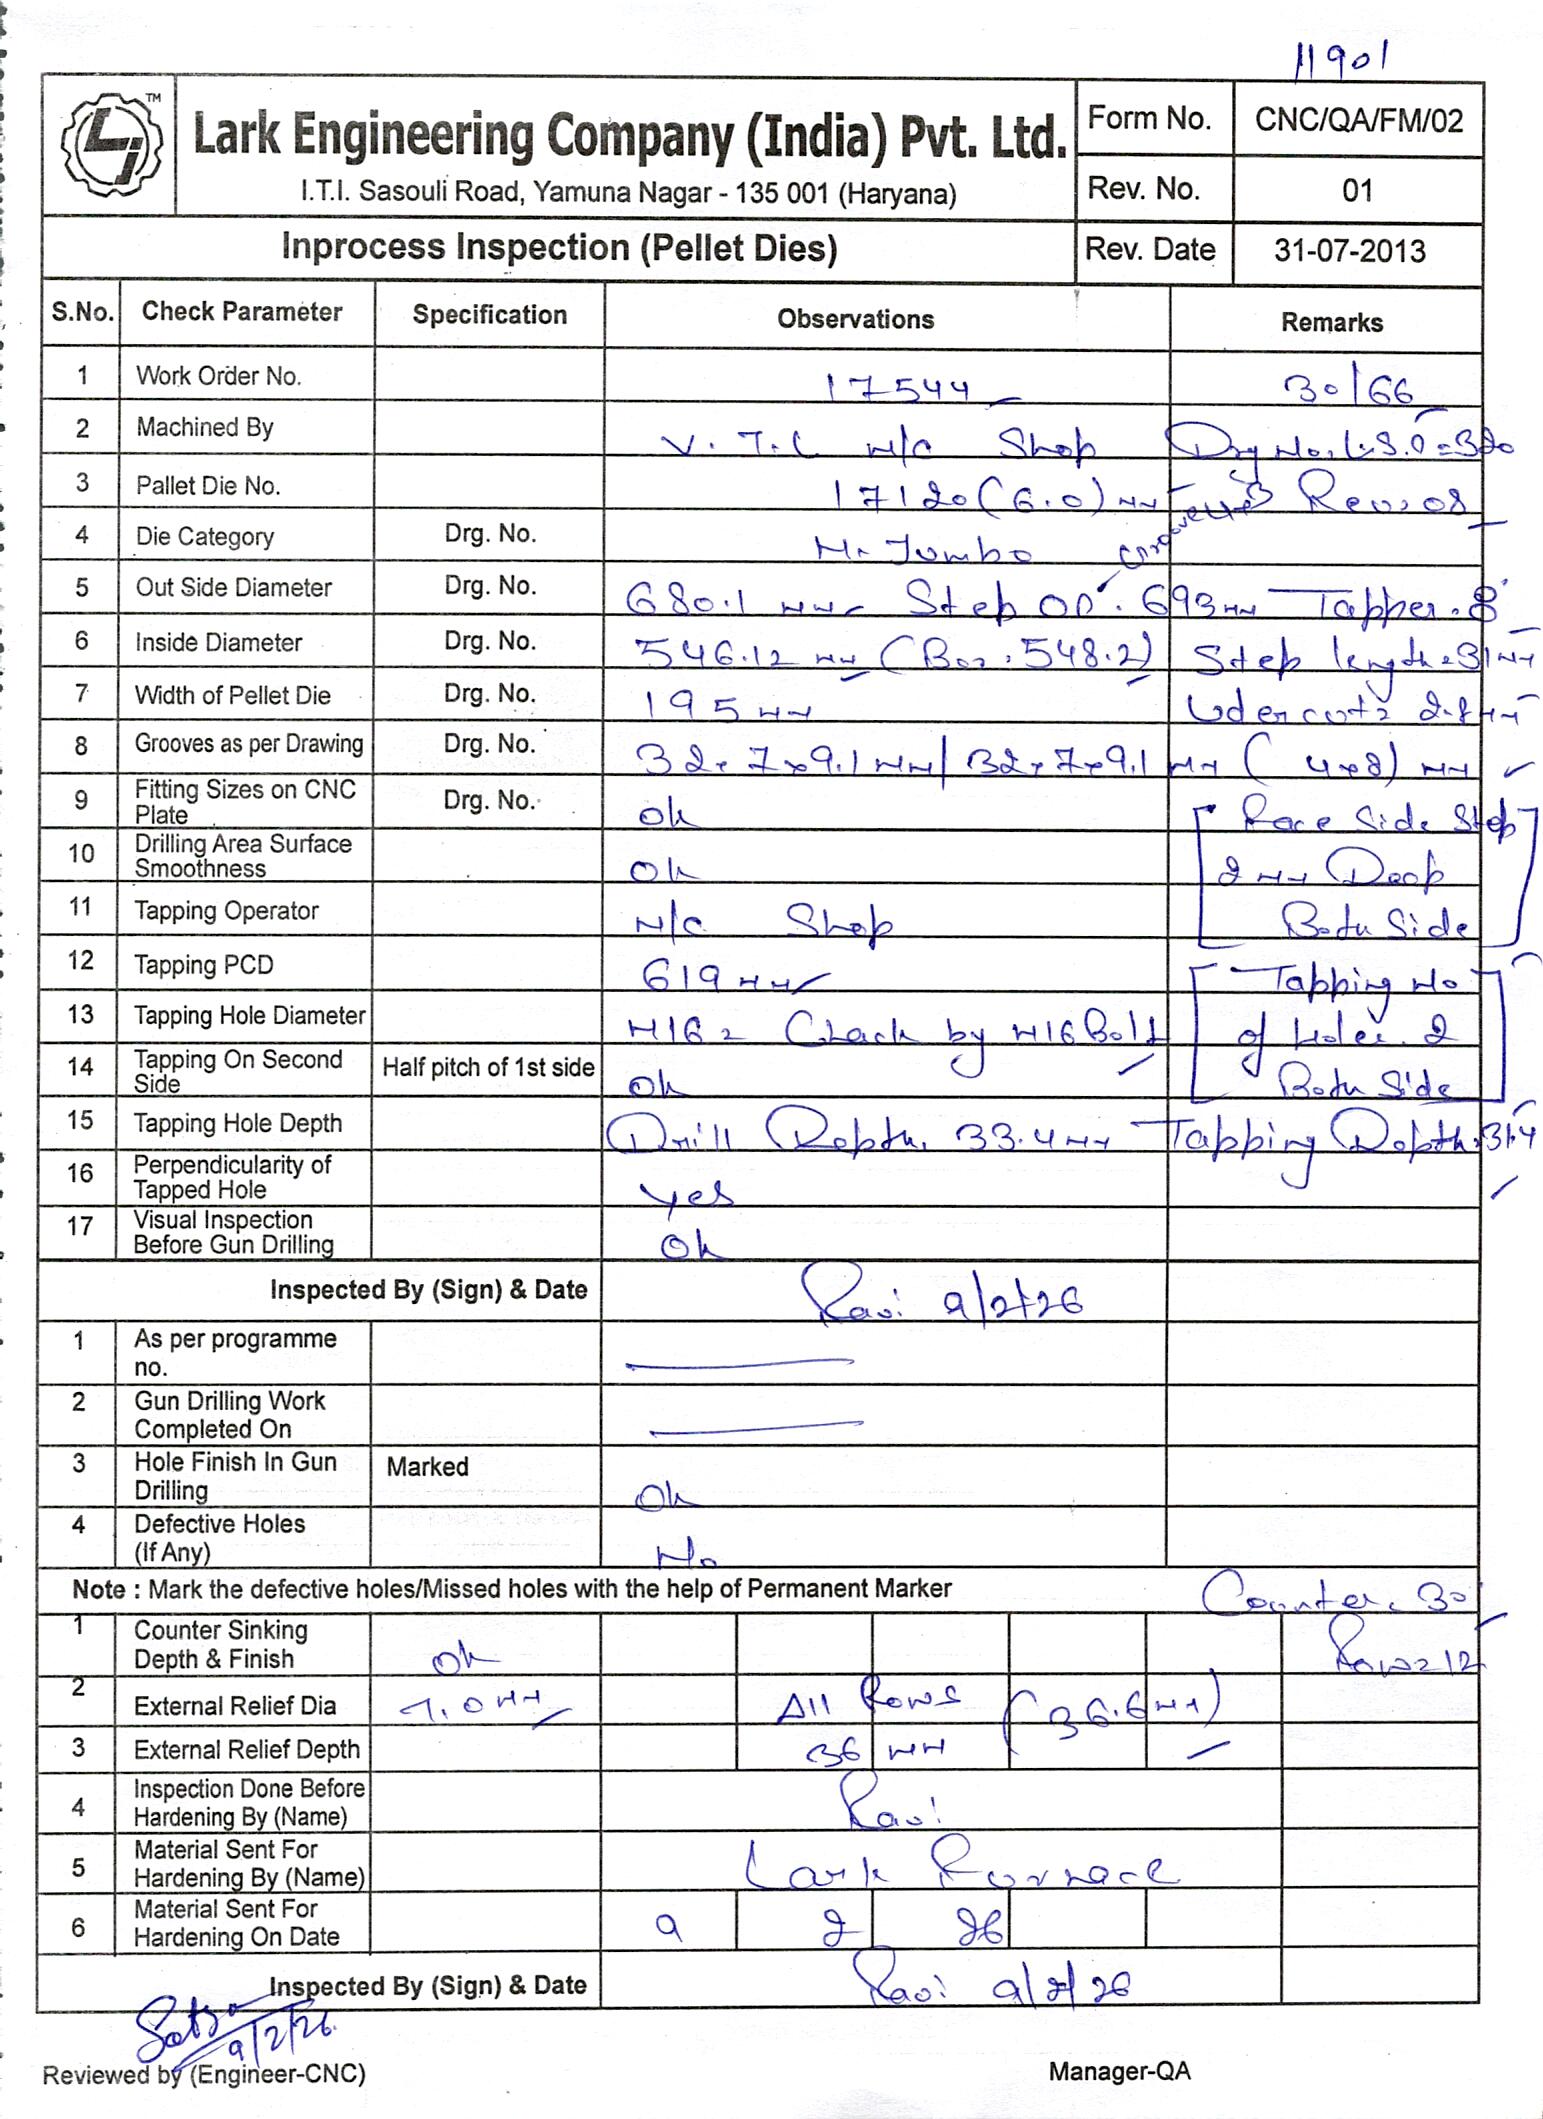 11901
TM
Lark Engineering Company (India) Pvt. Ltd.
I.T.I. Sasouli Road, Yamuna Nagar - 135 001 (Haryana)
Form No. CNC/QA/FM/02
Rev. No. 01
Inprocess Inspection (Pellet Dies) Rev. Date 31-07-2013
S.No. Check Parameter Specification Observations Remarks
1 Work Order No. 17544 30/66
2 Machined By V.T.L M/C Shop Drg No. L.S.O=320
3 Pallet Die No. 17120 (6.0) MM Rev.08
4 Die Category Drg. No. M. Jumbo
5 Out Side Diameter Drg. No. 680.1 MM Step OD. 693 MM Tapper. 8°
6 Inside Diameter Drg. No. 546.12 MM (Bor. 548.2) Step length=31 MM
7 Width of Pellet Die Drg. No. 195 MM Udercut= 2.8 MM
8 Grooves as per Drawing Drg. No. 32x7x9.1 MM / 32x7x9.1 MM (4x8) MM
9 Fitting Sizes on CNC Plate Drg. No. Ok Race Side Step
10 Drilling Area Surface Smoothness Ok 2 MM Deep
11 Tapping Operator M/C Shop Both Side
12 Tapping PCD 619 MM Tapping No
13 Tapping Hole Diameter M16 = Check by M16 Bolt of Holes. 2
14 Tapping On Second Side Half pitch of 1st side Ok Both Side
15 Tapping Hole Depth Drill Depth. 33.4 MM Tapping Depth. 31.4
16 Perpendicularity of Tapped Hole Yes
17 Visual Inspection Before Gun Drilling Ok
Inspected By (Sign) & Date Ravi 9/2/26
1 As per programme no.
2 Gun Drilling Work Completed On
3 Hole Finish In Gun Drilling Marked Ok
4 Defective Holes (If Any) No
Note : Mark the defective holes/Missed holes with the help of Permanent Marker Counter. 30°
1 Counter Sinking Depth & Finish Ok Row=12
2 External Relief Dia 7.0 MM All Rows (36.6 MM)
3 External Relief Depth 36 MM
4 Inspection Done Before Hardening By (Name) Ravi
5 Material Sent For Hardening By (Name) Lark Furnace
6 Material Sent For Hardening On Date 9 2 26
Inspected By (Sign) & Date Ravi 9/2/26
9/2/26
Reviewed by (Engineer-CNC) Manager-QA